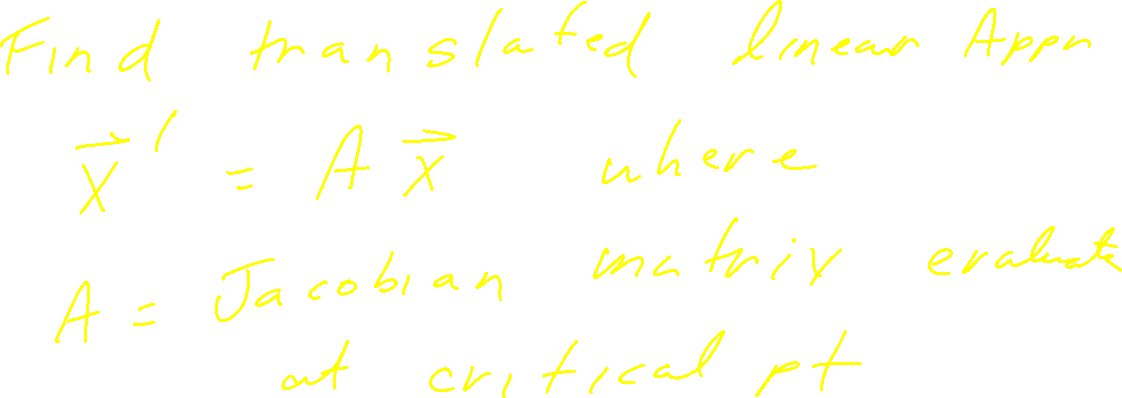 Find translated linear Appr
X⃗' = A X⃗ where
A = Jacobian matrix evaluate
at critical pt